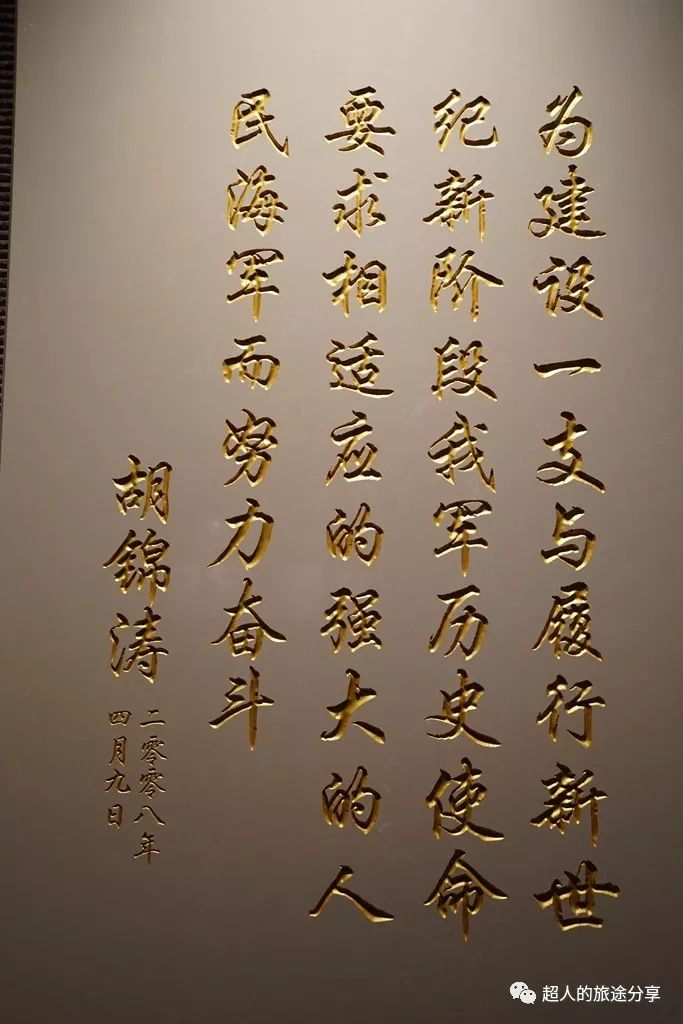 为建设一支与履行新世
纪新阶段我军历史使命
要求相适应的强大的人
民海军而努力奋斗
胡锦涛
二零零八年
四月九日
超人的旅途分享